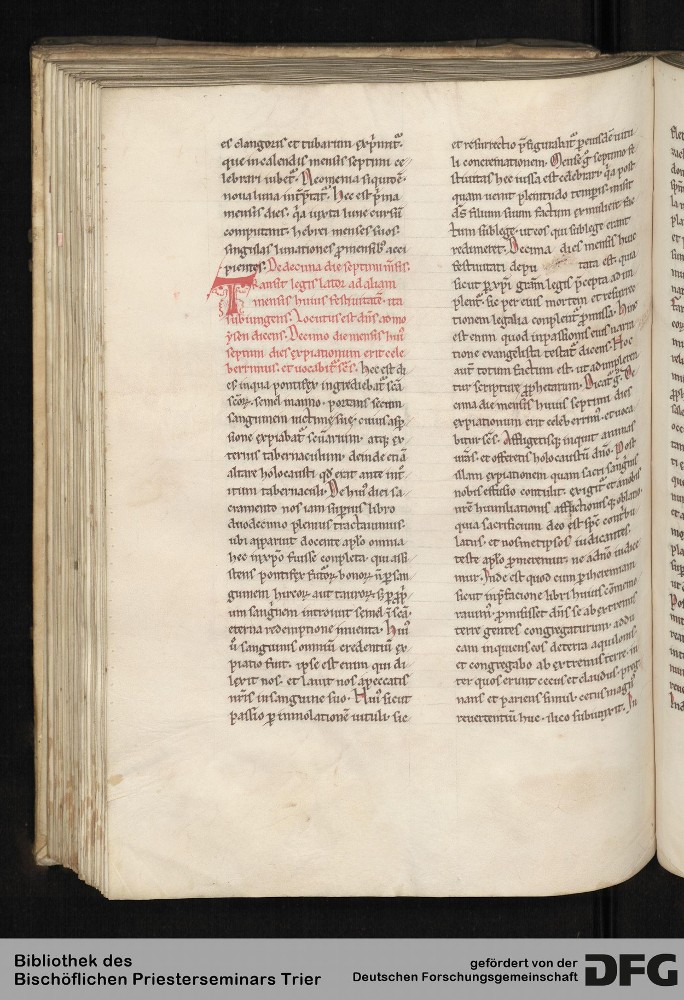 es clangoris et tubarum exp̄mit᷒.
que in calendis mensis septimi ce-
lebrari iubet᷒. Neomenia siquidē.
noua luna int̄p̄tat᷒. Hec est p̄ma
mensis dies. q̄a iuxta lune cursū
computant hebrei menses suos.
singulas lunationes ꝑ mensibꝰ acci
pientes. De decima die septimi m̄sis.
Transit legis lator ad aliam
mensis huius festiuitatē. ita
subiungens. Locutus est dn̄s ad mo
ysen dicens. Decimo die mensis huiꝰ
septimi dies expiationum erit cele
berrimus. et uocabit᷒ sc̄s. hec est di
es in qua pontifex ingrediebat᷒ sc̄a
sc̄oꝝ. semel in anno. portans secum
sanguinem uictime sue. cuius asꝑ
sione expiabat᷒ sc̄uarium. atq; ex
terius tabernaculum. deinde etiā
altare holocausti qd̄ erat ante int᷒
itum tabernaculi. De huiꝰ diei sa
cramento nos iam suꝑius libro
duodecimo plenius tractauimus.
ubi apparuit docente ap̄lo omnia
hec in xp̄o fuisse conpleta. qui assi
stens pontifex futuroꝝ bonoꝝ. n̄ ꝑ san
guinem hircoꝝ aut tauroꝝ. s; ꝑ ꝓp̄
um sanguinem introiuit semel in sc̄a.
eterna redemptione inuenta. Huiꝰ
ū sanguinis omniū credentiū ex
piatio fuit. ipse est enim qui di
lexit nos. et lauit nos a peccatis
nr̄is in sanguine suo. Huiꝰ sicut
passio ꝑ inmolationē uituli. sic
et resurrectio p̄figurabat᷒ ꝑ eiusdē uitu
li concremationem. Mense g̊ septimo fe
stiuitas hec iussa est celebrari. q̄a post
quam uenit plenitudo temꝑis. misit
d̄s filium suum factum ex muliere fac
tum sub lege. ut eos qui sub lege erant
redimeret. Decima dies mensis huic
festiuitati depu tata est. quia
sicut ꝑ xp̄i gr̄am legis p̄cepta adim
plent᷒. sic per eius mortem et resurrec
tionem legalia conplent᷒ ꝓmissa. Hinc
est enim quod in passionis eius narra
tione euangelista testat᷒ dicens. Hoc
aut̄ totum factum est. ut adimpleren
tur scripture ꝓphetarum. Dicat᷒ g̊. De
cima die mensis huius septimi dies
expiationum erit celeberrimꝰ. et uoca
bitur sc̄s. Affligetisq; inquit animas
ur̄as. et offeretis holocaustū dn̄o. Post
illam expiationem quam sacri sanguinis
nobis effusio contulit. exigit᷒ et a nobis
nr̄e humiliationis afflictionisq; oblatio.
quia sacrificium deo est sp̄c contribu
latus. et nosmetipsos iudicantes.
teste ap̄lo ꝓmeremur. ne a dn̄o iudice
mur. Inde est quod cum ꝑ iheremiam
sicut in p̄facione libri huius cōmemo
rauimꝰ. ꝓmisisset dn̄s se ab extremis
terre gentes congregaturum. addu
cam inquiens eos de terra aquilonis.
et congregabo ab extremis terre. in
ter quos erunt cecus et claudus. preg
nans et pariens simul. cetus magnꝰ
reuertentiū huc. ilico subiunxit. In
Bibliothek des
Bischöflichen Priesterseminars Trier
gefördert von der
Deutschen Forschungsgemeinschaft DFG